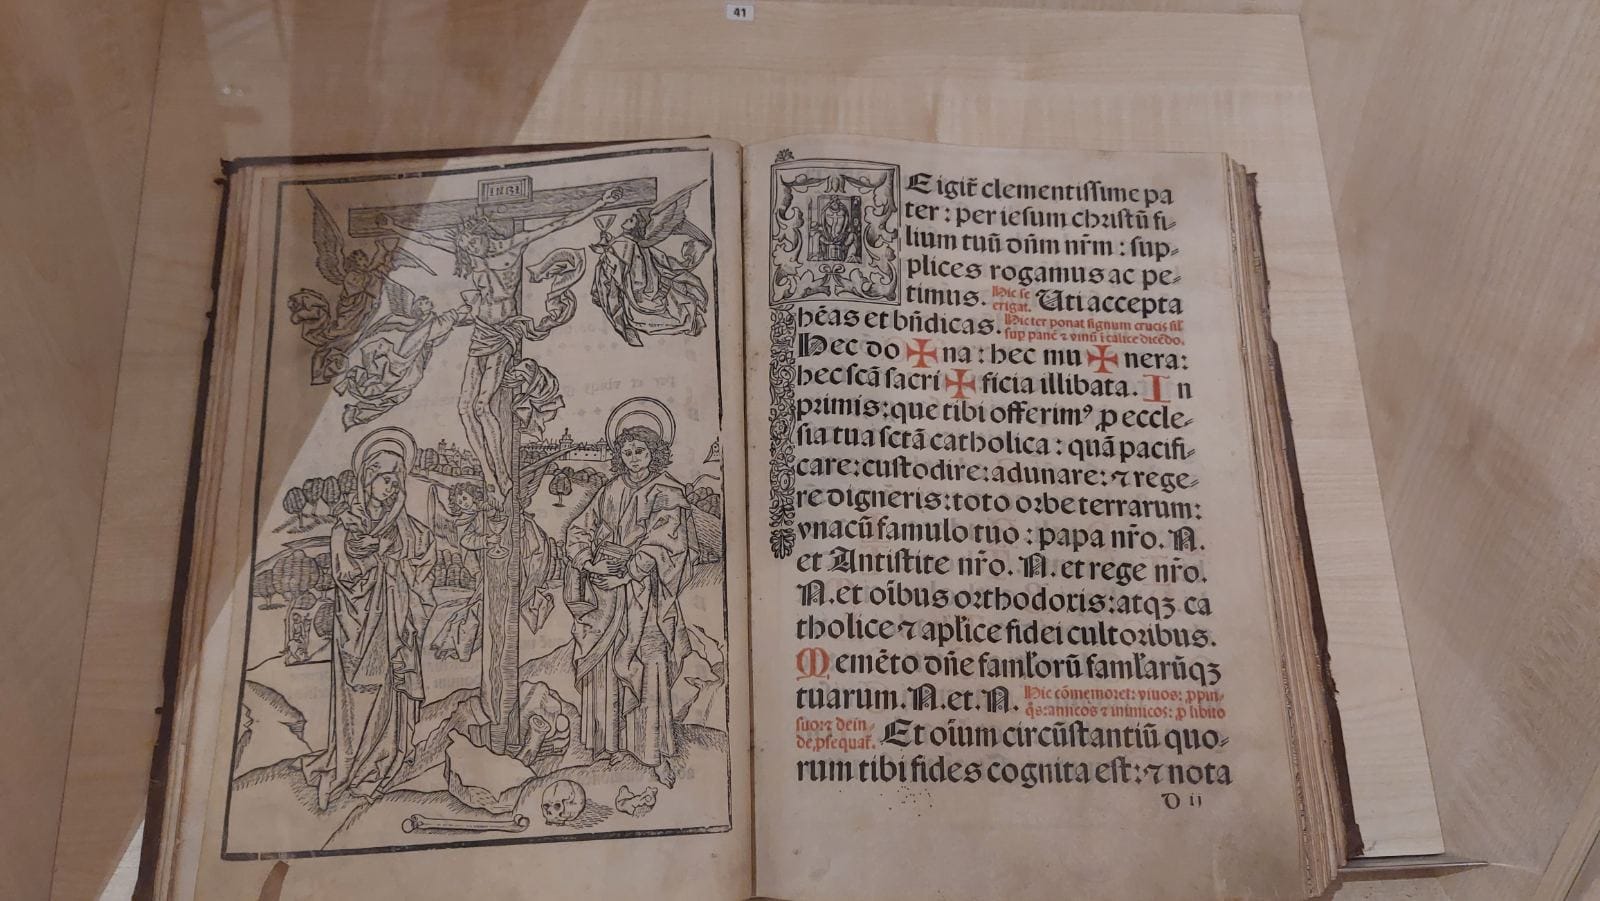 41
INRI
E igit̄ clementissime pa
ter : per iesum christū fi⸗
lium tuū dñm nr̄m : sup⸗
plices rogamus ac pe⸗
timus. Hic se erigat. Uti accepta
hēas et bn̄dicas. Hic ter ponat signum crucis sil̄
sup panē ⁊ vinū ī calice dicēdo.
Hec do ✠ na : hec mu ✠ nera:
hec scā sacri ✠ ficia illibata. In
primis: que tibi offerimꝰ ꝓ eccle⸗
sia tua sctā catholica : quā pacifi⸗
care: custodire: adunare: ⁊ rege⸗
re digneris: toto orbe terrarum:
vnacū famulo tuo : papa nr̄o. N.
et Antistite nr̄o. N. et rege nr̄o.
N. et oībus orthodoxis: atqꝫ ca
tholice ⁊ apl̄ice fidei cultoribus.
Memēto dn̄e faml̄orū faml̄arūqꝫ
tuarum. N. et. N. Hic cōmemoret: viuos: ꝓpin⸗
q̄s: amicos ⁊ inimicos: ꝓ libito
suoꝝ dein⸗
de ꝓsequat̄. Et oīum circūstantiū quo⸗
rum tibi fides cognita est: ⁊ nota
D ii